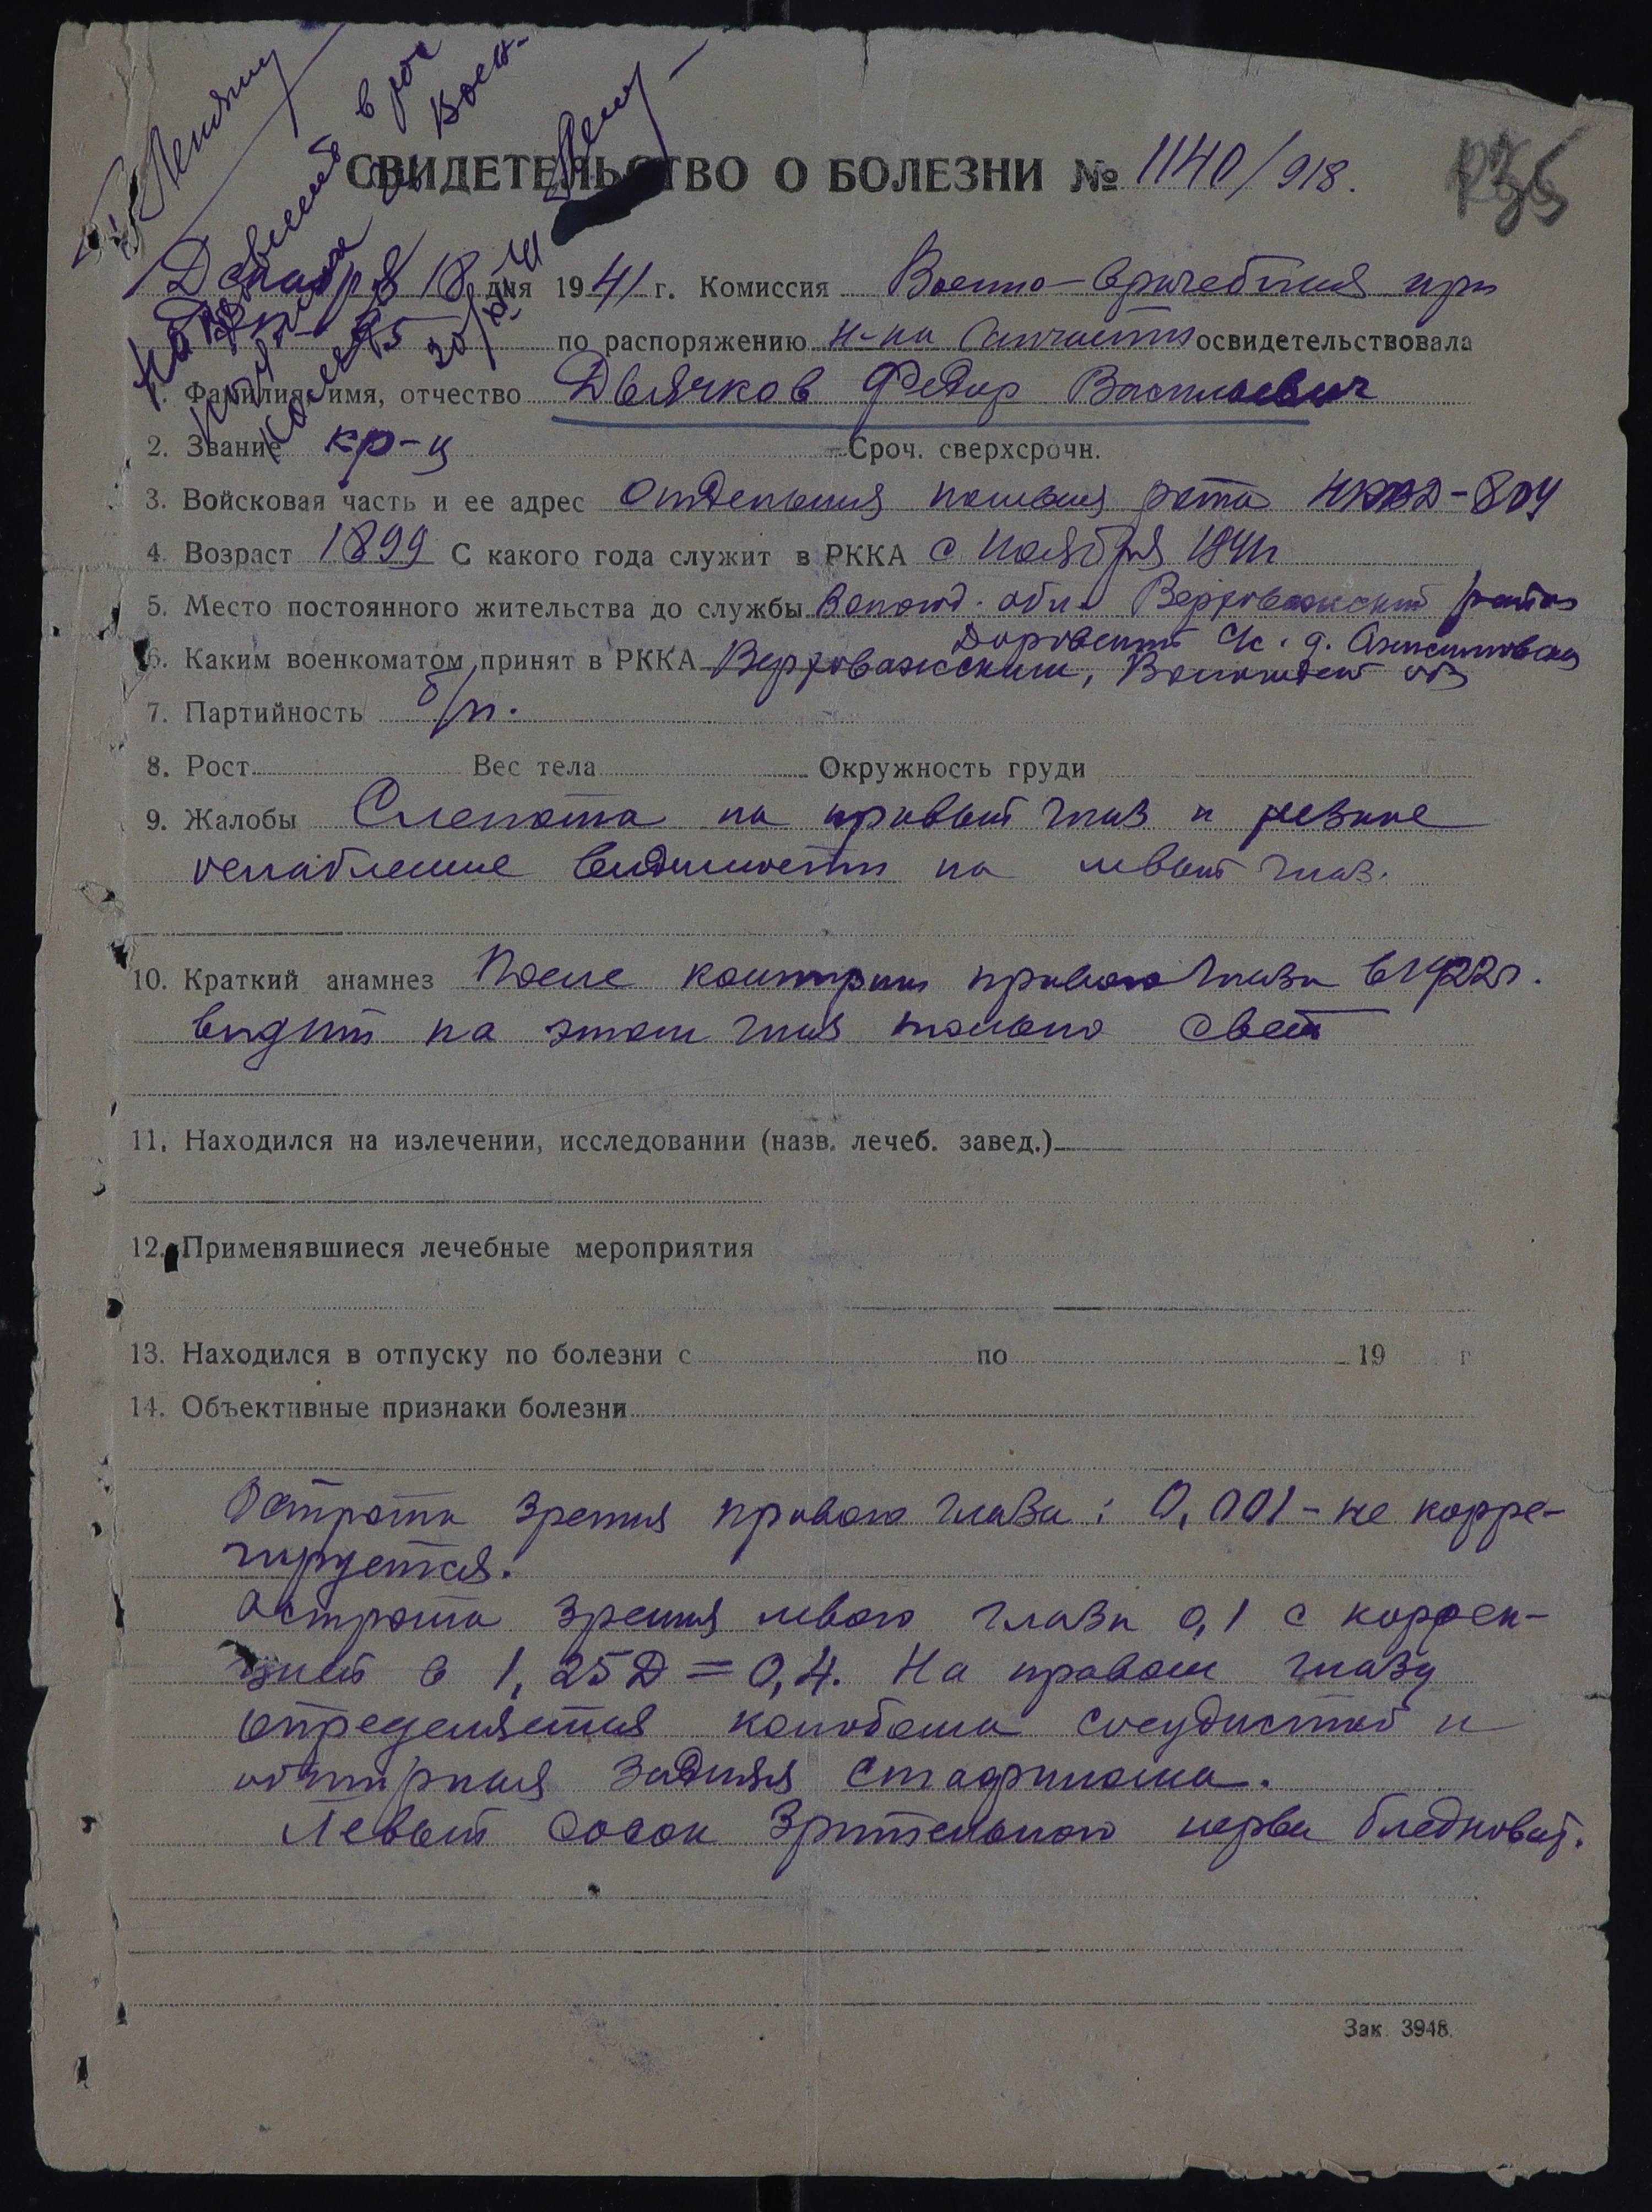 СВИДЕТЕЛЬСТВО О БОЛЕЗНИ № 1140/918.
Декабря 18 дня 1941 г. Комиссия Военно-врачебная при
по распоряжению н-ка санчасти освидетельствовала
Фамилия, имя, отчество Дьячков Федор Васильевич
2. Звание кр-ц Сроч. сверхсрочн.
3. Войсковая часть и ее адрес отдельная рота
4. Возраст 1899 С какого года служит в РККА с Ноября 1941г
5. Место постоянного жительства до службы Волог. обл. Верховажский район
Доровский с/с. д.
6. Каким военкоматом принят в РККА Верховажским, Вологодской обл
7. Партийность б/п.
8. Рост Вес тела Окружность груди
9. Жалобы Слепота на правый глаз и резкое
ослабление видимости на левый глаз.
10. Краткий анамнез После контузии правого глаза в 1922г.
видит на этом глаз только свет
11. Находился на излечении, исследовании (назв. лечеб. завед.)
12. Применявшиеся лечебные мероприятия
13. Находился в отпуску по болезни с по 19 г
14. Объективные признаки болезни
Острота зрения правого глаза: 0,001 - не корре-
гируется.
Острота зрения левого глаза 0,1 с коррек-
цией в 1,25D = 0,4. На правом глазу
определяется колобома сосудистой и
обширная задняя стафилома.
Левый сосок зрительного нерва бледноват.
Зак. 3948.